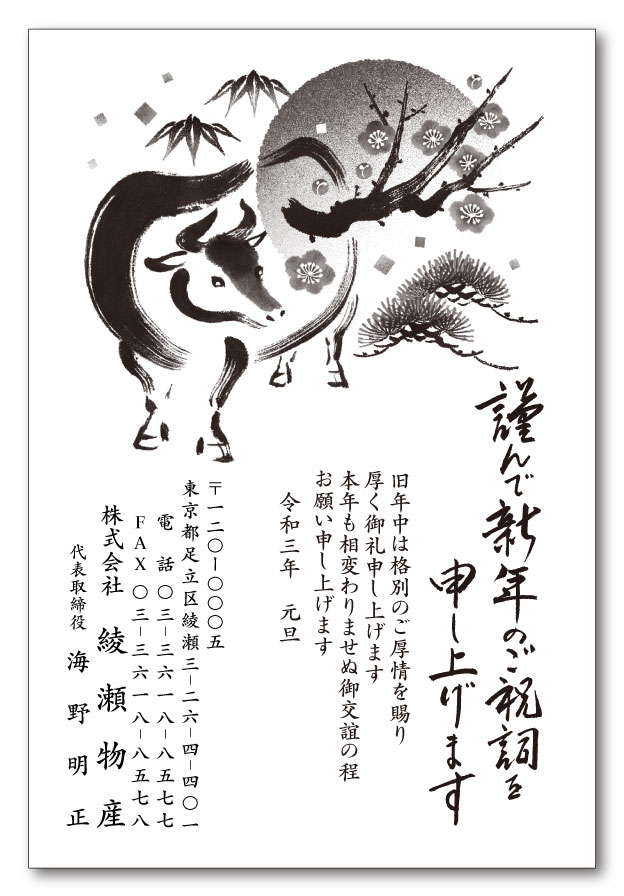 謹んで新年のご祝詞を
申し上げます
旧年中は格別のご厚情を賜り
厚く御礼申し上げます
本年も相変わりませぬ御交誼の程
お願い申し上げます
令和三年　元旦
〒一二〇-〇〇〇五
東京都足立区綾瀬三-二六-四-四〇一
電　話　〇三-三六一八-八五七七
ＦＡＸ　〇三-三六一八-八五七八
株式会社　綾瀬物産
代表取締役　海野明正